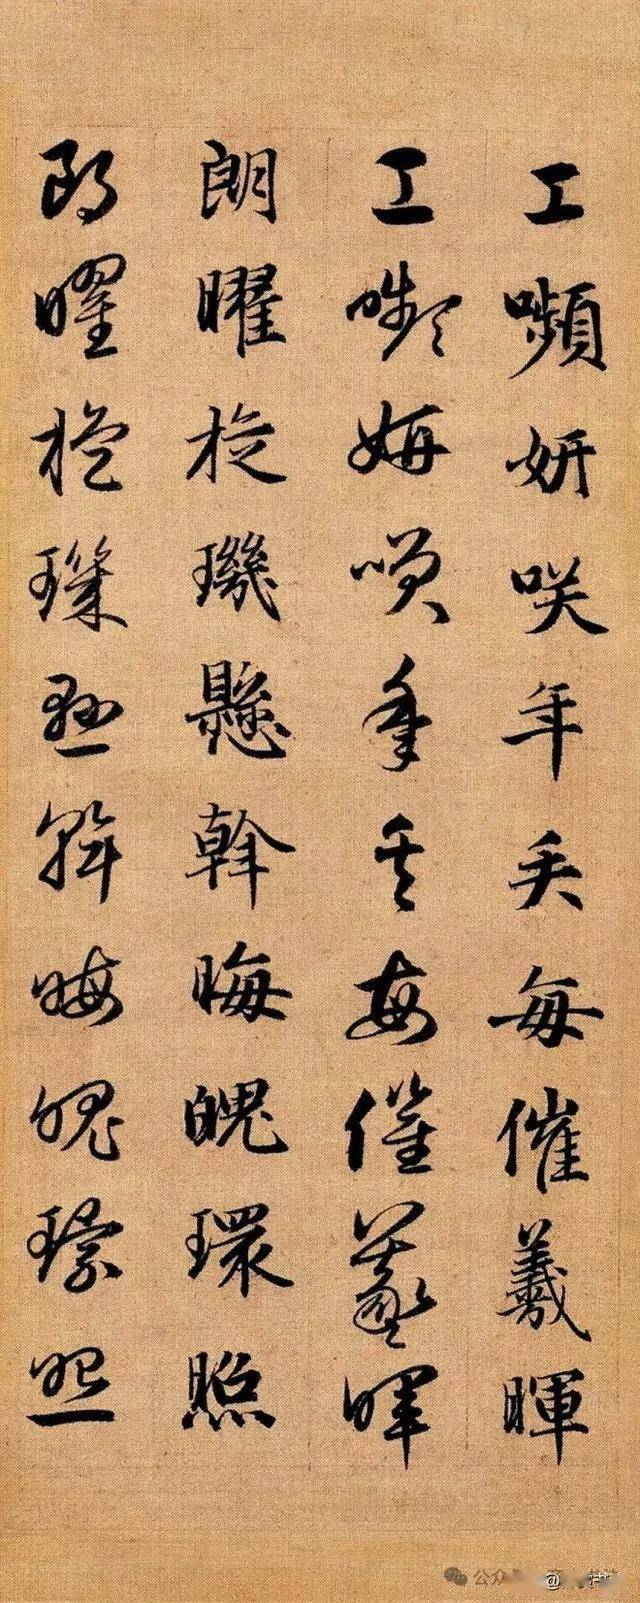 工嚬妍咲年矢每催羲暉
工嚬妍咲年矢每催羲暉
朗曜旋璣懸斡晦魄環照
朗曜旋璣懸斡晦魄環照
公众